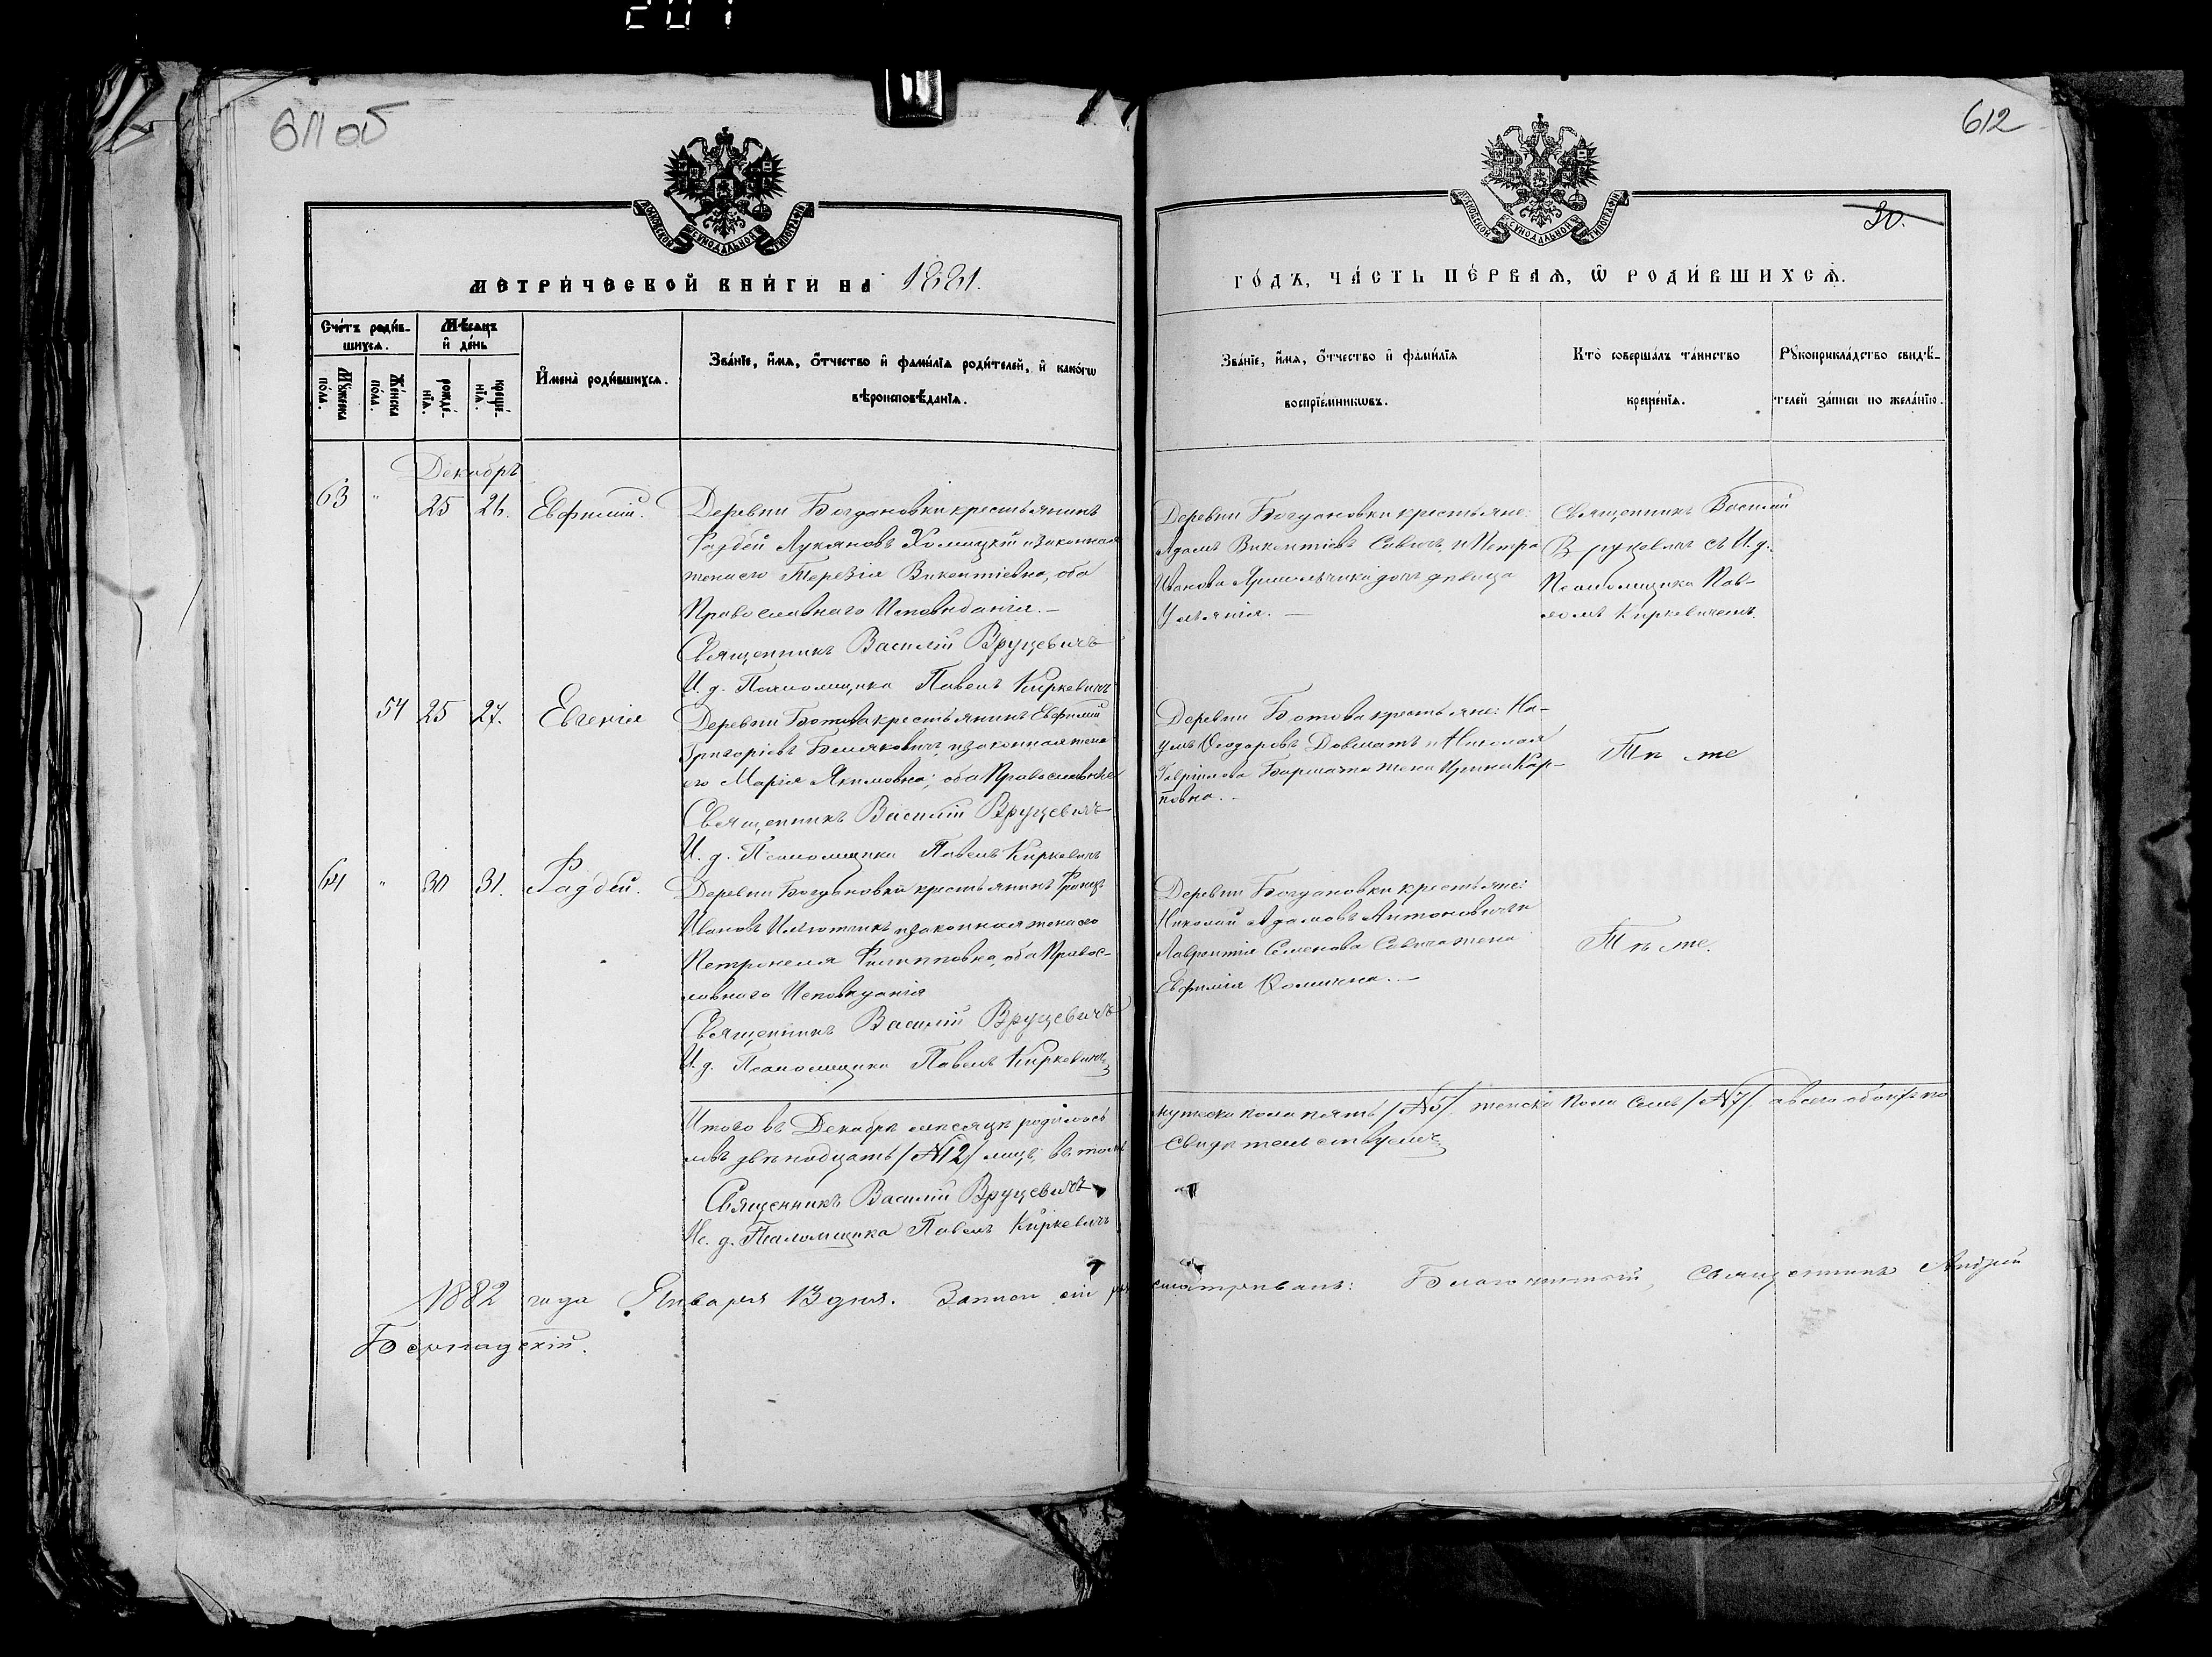 207
611 об
612
МОСКОВСКОЙ СѴНОДАЛЬНОЙ ТИПОГРАФІИ
МОСКОВСКОЙ СѴНОДАЛЬНОЙ ТИПОГРАФІИ
30.
МЕТРИ́ЧЕСКОЙ КНИ́ГИ НА 1881.
ГО́ДЪ, ЧА́СТЬ ПЕ́РВАѦ, Ѡ҆ РОДИ́ВШИХСѦ.
Сче́тъ роди́в-
шихсѧ.
Мѣ́сѧцъ
и҆ де́нь
Мꙋ́жеска
по́ла.
Же́нска
по́ла.
рожде́-
нїѧ.
креще́-
нїѧ.
И҆мена̀ роди́вшихсѧ.
Зва́нїе, и҆́мѧ, ѻ҆́тчество и҆ фами́лїѧ роди́телей, и҆ како́гѡ
вѣроисповѣ́данїѧ.
Зва́нїе, и҆́мѧ, ѻ҆́тчество и҆ фами́лїѧ
воспрїе́мникѡвъ.
Кто̀ соверша́лъ та́инство
креще́нїѧ.
Рꙋкоприкла́дство свидѣ́-
телей за́писи по жела́нїю.
Декабрь
63 " 25 26. Евфимій.
Деревни Богдановки крестьянинъ
Фаддей Лукяновъ Хомицкій и законная
жена его Терезія Викентіевна, оба
Православнаго Исповѣданія. —
Священникъ Василій Вруцевичъ
И. д. Псаломщика Павелъ Киркевичъ
Деревни Богдановки крестьяне:
Адамъ Викентіевъ Савичъ и Петра
Иванова дочь дѣвица
Ульянія. —
Священникъ Василій
Вруцевичъ съ И. д.
Псаломщика Пав-
ломъ Киркевичемъ.
54 25 27. Евгенія
Деревни Ботова крестьянинъ Евфимій
Григоріевъ и законная жена
его Марія Якимовна; оба Православные
Священникъ Василій Вруцевичъ
И. д. Псаломщика Павелъ Киркевичъ
Деревни Ботова крестьяне: На-
умъ Ѳеодоровъ Довматъ и Николая
Гаврилова жена Ирина Кар-
повна. —
Тѣ же
64 " 30 31. Фаддей.
Деревни Богдановки крестьянинъ Францъ
Ивановъ и законная жена его
Петронеля Филипповна, оба Правос-
лавнаго Исповѣданія
Священникъ Василій Вруцевичъ
И. д. Псаломщика Павелъ Киркевичъ
Деревни Богдановки крестьяне:
Николай Адамовъ Антоновичъ и
Лаврентія Семенова Савича жена
Евфимія Фомична. —
Тѣ же.
Итого въ Декабрѣ мѣсяцѣ родилось
двѣнадцать /№12/ лицъ; въ томъ
мужеска пола пять /№5/, женска пола семь /№7/, а всего обоего по
Свидѣтельствуемъ
Священникъ Василій Вруцевичъ
И. д. Псаломщика Павелъ Киркевичъ
1882 года Января 13 дня. Записи сіи разсматривалъ: Благочинный, Священникъ Андрей